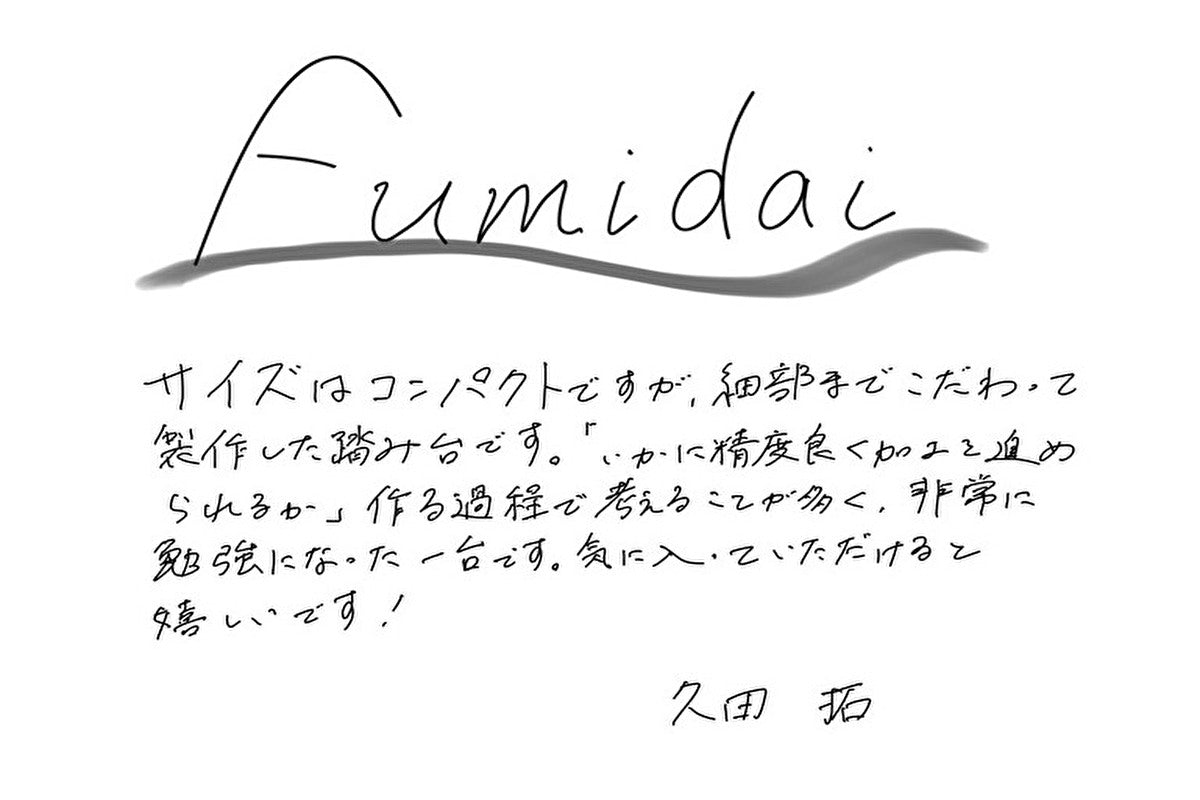 Fumidai
サイズはコンパクトですが、細部までこだわって
製作した踏み台です。「いかに精度良く加工を進め
られるか」作る過程で考えることが多く、非常に
勉強になった一台です。気に入っていただけると
嬉しいです!
久田 拓